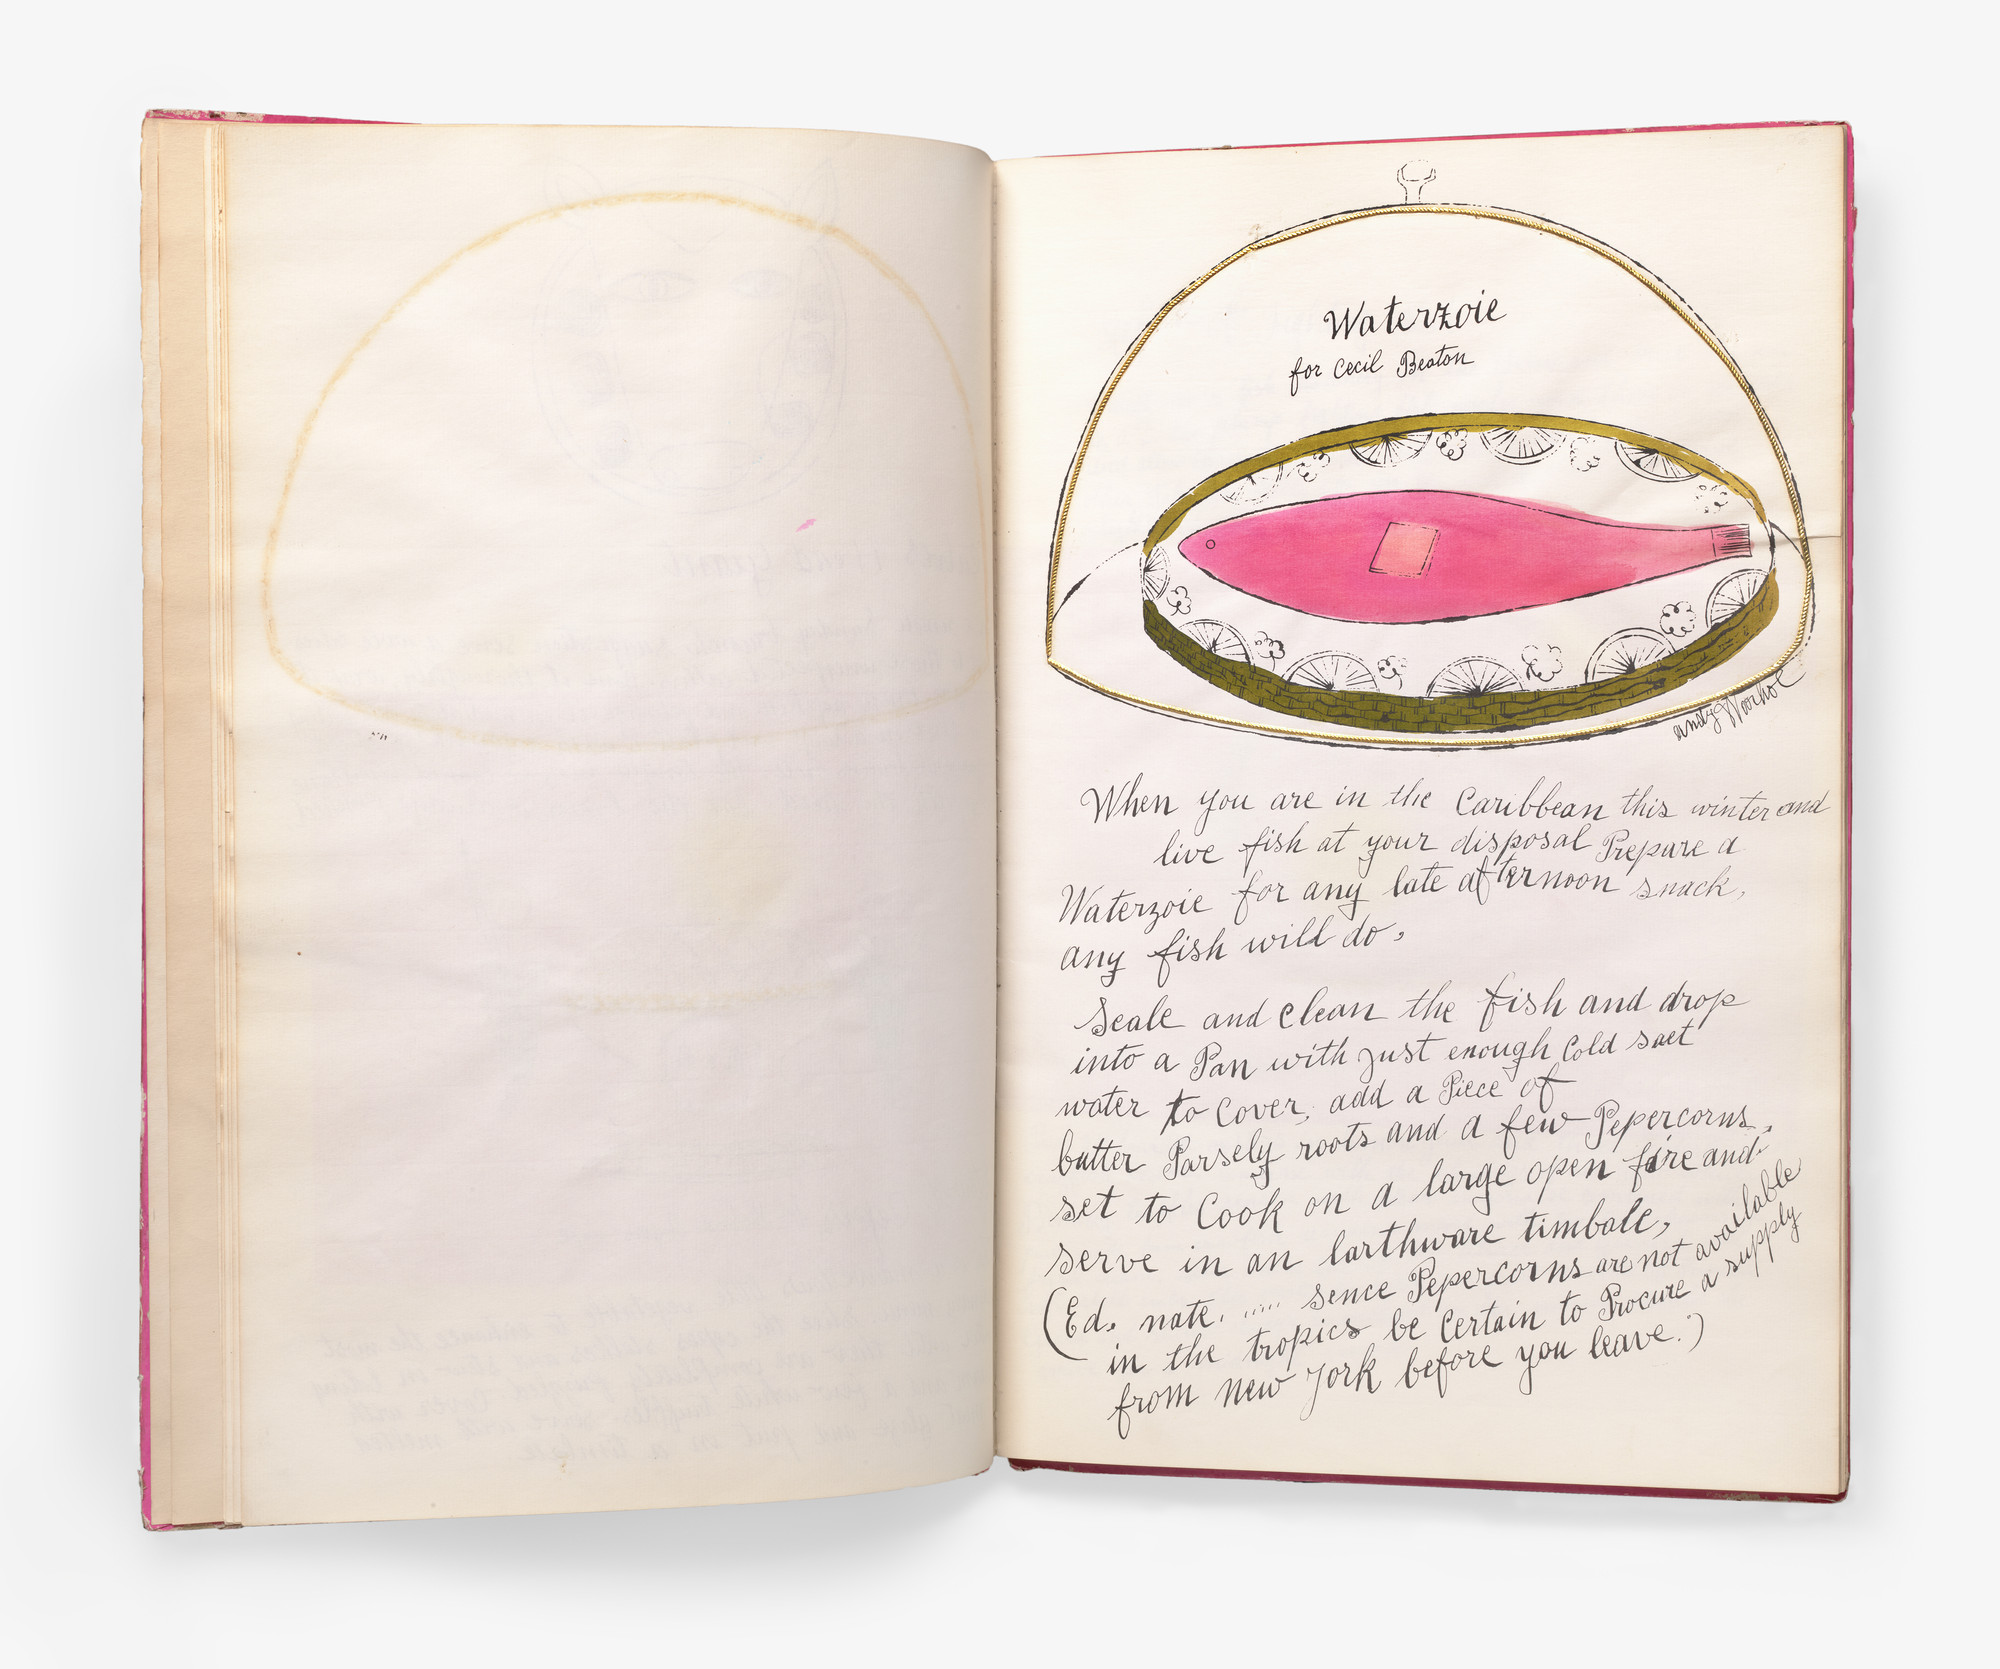 Waterzoie
for Cecil Beaton
andy Warhol
When you are in the Caribbean this winter and
live fish at your disposal Prepare a
Waterzoie for any late afternoon snack,
any fish will do,
Scale and clean the fish and drop
into a Pan with just enough Cold salt
water to Cover, add a Piece of
butter Parsely roots and a few Pepercorns,
set to Cook on a large open fire and
serve in an earthware timbale,
(Ed. note. ..... sence Pepercorns are not available
in the tropics be Certain to Procure a supply
from New York before you leave.)